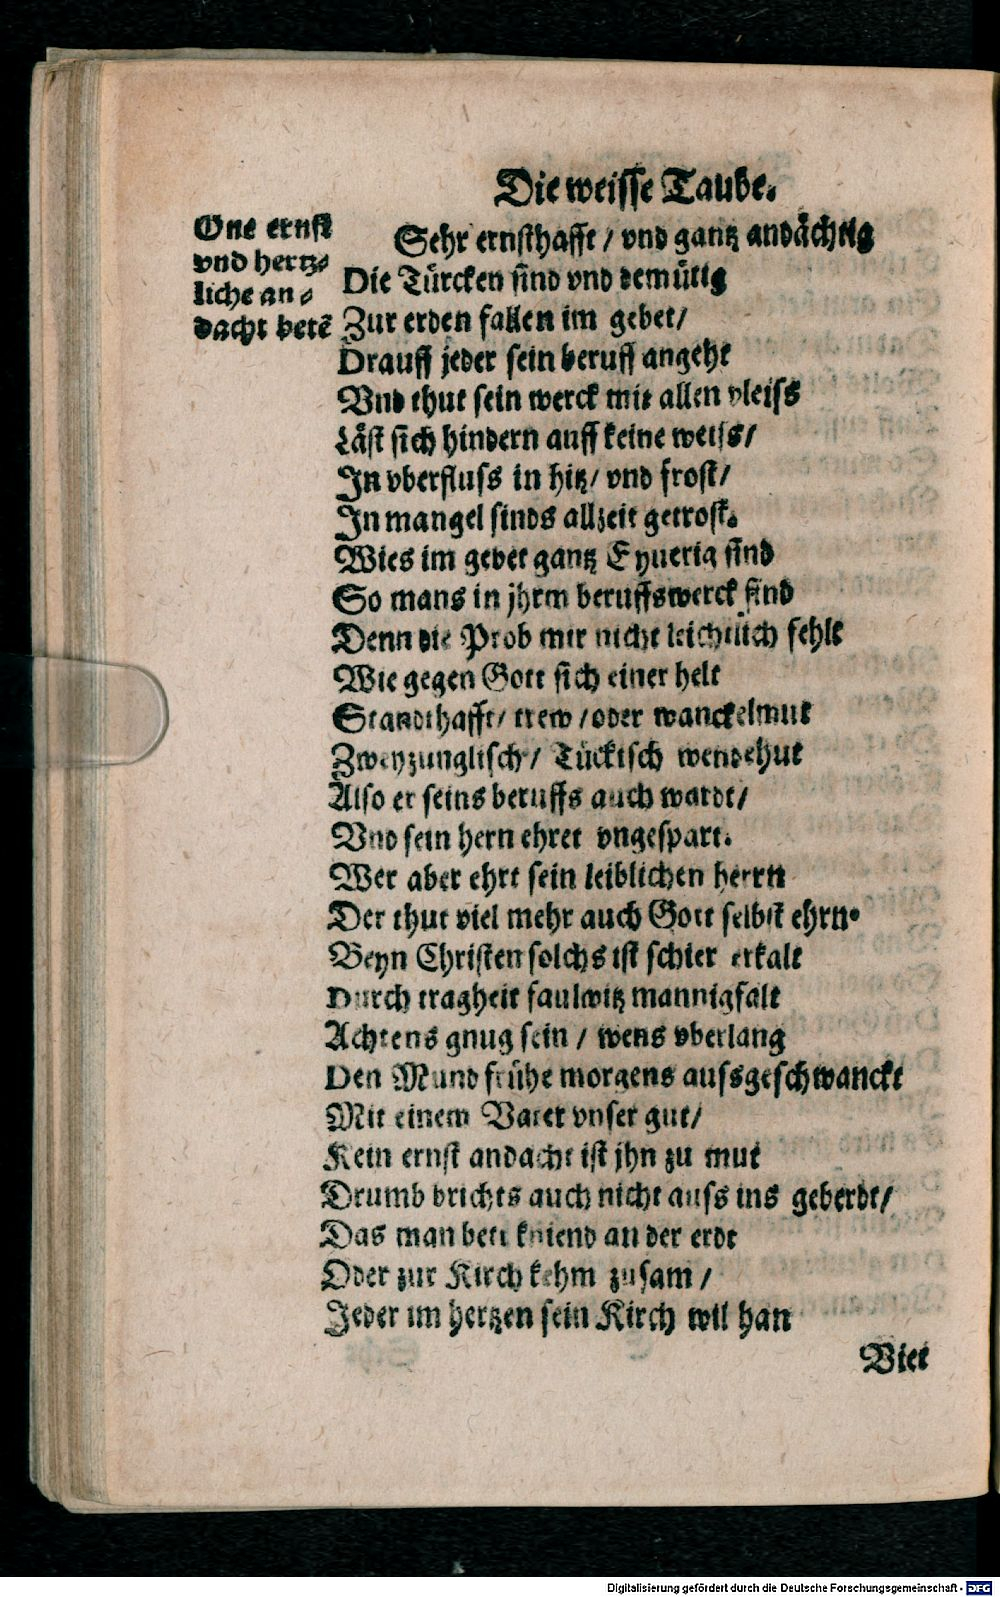 Die weisse Taube.
One ernst
vnd hertz-
liche an-
dacht betẽ
Sehr ernsthafft / vnd gantz andächtig
Die Türcken sind vnd demütig
Zur erden fallen im gebet/
Drauff jeder sein beruff angeht
Vnd thut sein werck mit allen vleiss
Läst sich hindern auff keine weiss/
In vberfluss in hitz/ vnd frost/
In mangel sinds allzeit getrost.
Wies im gebet gantz Eyuerig sind
So mans in jhrm beruffswerck find
Denn die Prob mir nicht leichtlich fehlt
Wie gegen Gott sich einer helt
Standthafft/ trew /oder wanckelmut
Zweyzunglisch/ Tückisch wendehut
Also er seins beruffs auch wardt/
Vnd sein hern ehret vngespart.
Wer aber ehrt sein leiblichen herrn
Der thut viel mehr auch Gott selbst ehrn.
Beyn Christen solchs ist schier erkalt
Durch tragheit faulwitz mannigfalt
Achtens gnug sein / wens vberlang
Den Mund frühe morgens aussgeschwanckt
Mit einem Vater vnser gut/
Kein ernst andacht ist jhn zu mut
Drumb brichts auch nicht auss ins geberdt/
Das man bett kniend an der erdt
Oder zur Kirch kehm zusam /
Jeder im hertzen sein Kirch wil han
Viel
Digitalisierung gefördert durch die Deutsche Forschungsgemeinschaft - DFG